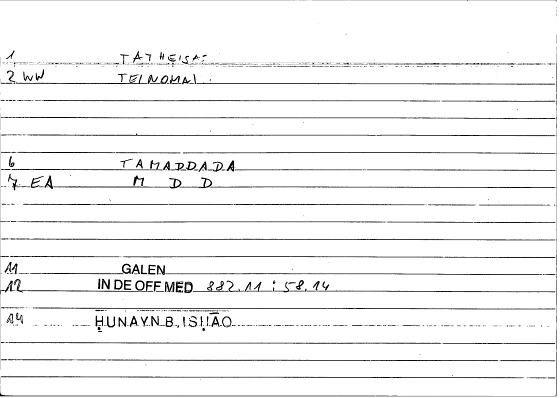 1 TATHEISA:
2 WW TEINOMAI
6 TAMADDADA
7 EA M D D
11 GALEN
12 IN DE OFF MED 882.11 : 58.14
14 ḤUNAYN B. ISḤĀQ